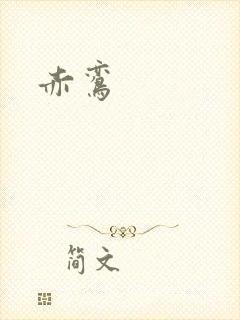 赤鸾
简文